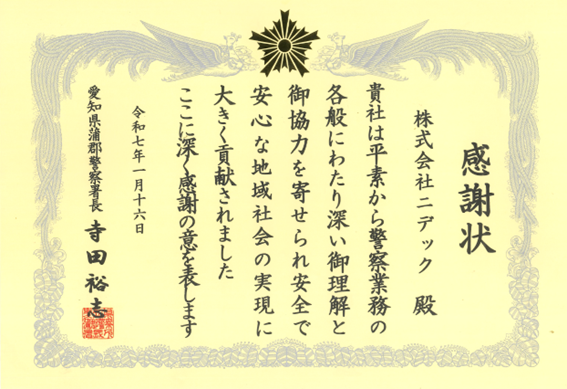 感謝状
株式会社ニデック 殿
貴社は平素から警察業務の
各般にわたり深い御理解と
御協力を寄せられ安全で
安心な地域社会の実現に
大きく貢献されました
ここに深く感謝の意を表します
令和七年一月十六日
愛知県蒲郡警察署長 寺田裕志